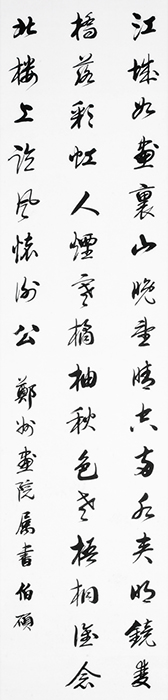 江城如畫裏山晚望晴空兩水夾明鏡雙
橋落彩虹人煙寒橘柚秋色老梧桐誰念
北樓上臨風懷謝公 鄭州畫院属書 伯碩